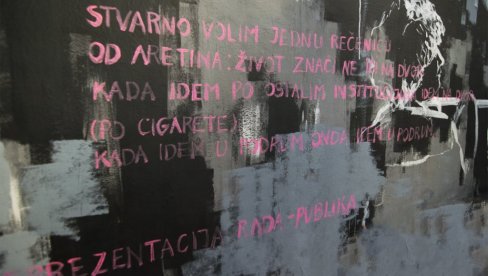 STVARNO VOLIM JEDNU REČENICU
OD ARETINA: ŽIVOT ZNAČI NE IĆI NA DVOR
KADA IDEM PO OSTALIM INSTITUCIJAMA IDEM NA DVOR
(PO CIGARETE)
KADA IDEM U PODRUM ONDA IDEM U PODRUM
PREZENTACIJA RADA-PUBLIKA